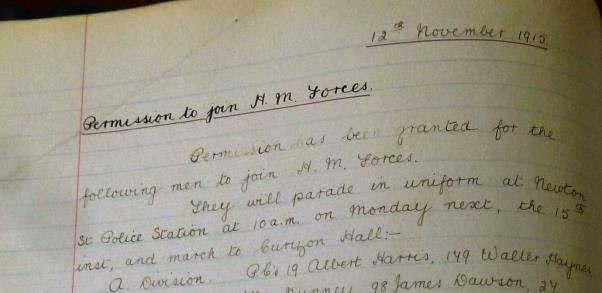 12th November 1915.
Permission to join H. M. Forces.
Permission has been granted for the
following men to join H. M. Forces.
They will parade in uniform at Newton
St Police Station at 10 a.m. on Monday next, the 15th
inst, and march to Curzon Hall:-
A. Division. P.C's 19 Albert Harris, 149 Walter Haynes,
98 James Dawson, 24